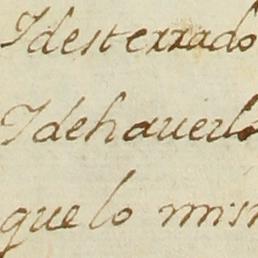 Ydesterrado
Ydehauerlo
quelo mism